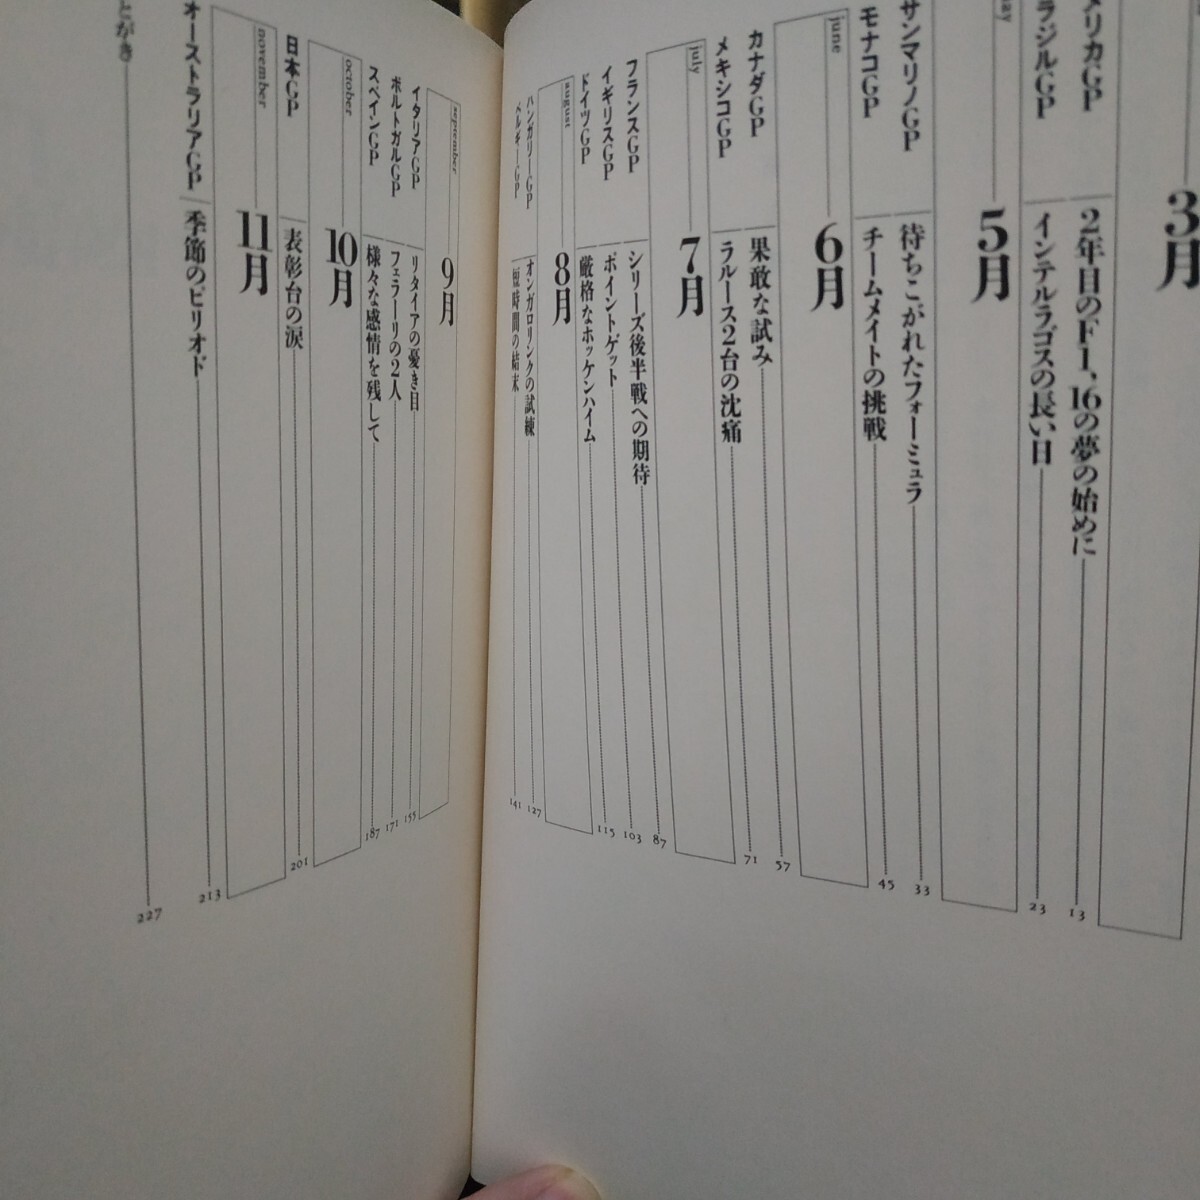 3月
メリカGP 2年目のF1、16の夢の始めに 13
ラジルGP インテルラゴスの長い日 23
may
5月
サンマリノGP 待ちこがれたフォーミュラ 33
モナコGP チームメイトの挑戦 45
june
6月
カナダGP 果敢な試み 57
メキシコGP ラルース2台の沈痛 71
july
7月
フランスGP シリーズ後半戦への期待 87
イギリスGP ポイントゲット 103
ドイツGP 厳格なホッケンハイム 115
august
8月
ハンガリーGP オンガロリンクの試練 127
ベルギーGP 短時間の結末 141
september
9月
イタリアGP リタイアの憂き目 155
ポルトガルGP フェラーリの2人 171
スペインGP 様々な感情を残して 187
october
10月
日本GP 表彰台の涙 201
november
11月
オーストラリアGP 季節のピリオド 213
とがき 227